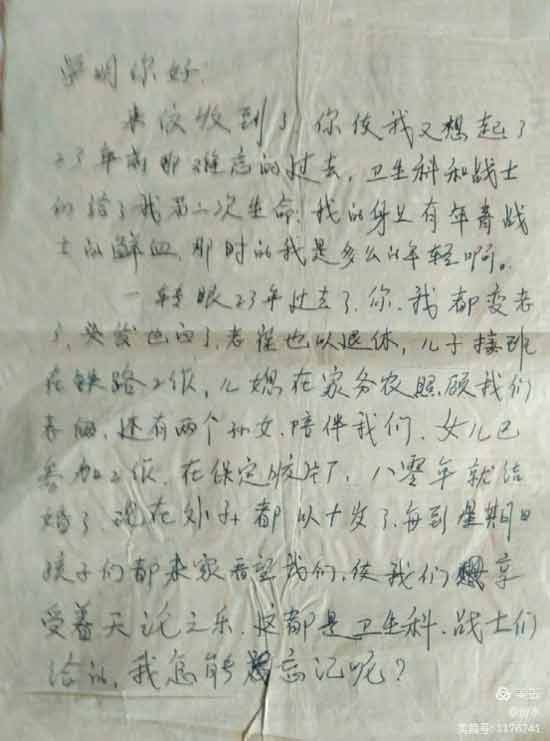 学明你好:
来信收到了,你使我又想起了
23年前那难忘的过去,卫生科和战士
们给了我第二次生命,我的身上有年青战
士的鲜血,那时的我是多么的年轻啊。
一转眼23年过去了,你、我都变老
了,头发也白了,老崔也以退休,儿子接班
在铁路工作,儿媳在家务农照顾我们
还有两个孙女.陪伴我们.女儿已
参加工作.在保定胶片厂,八零年就结
婚了,现在外子都以十岁了,每到星期日
孩子们都来家看望我们,使我们享
受着天论之乐.这都是卫生科、战士们
给的,我怎能忘记呢?
美篇
美篇号:1176741